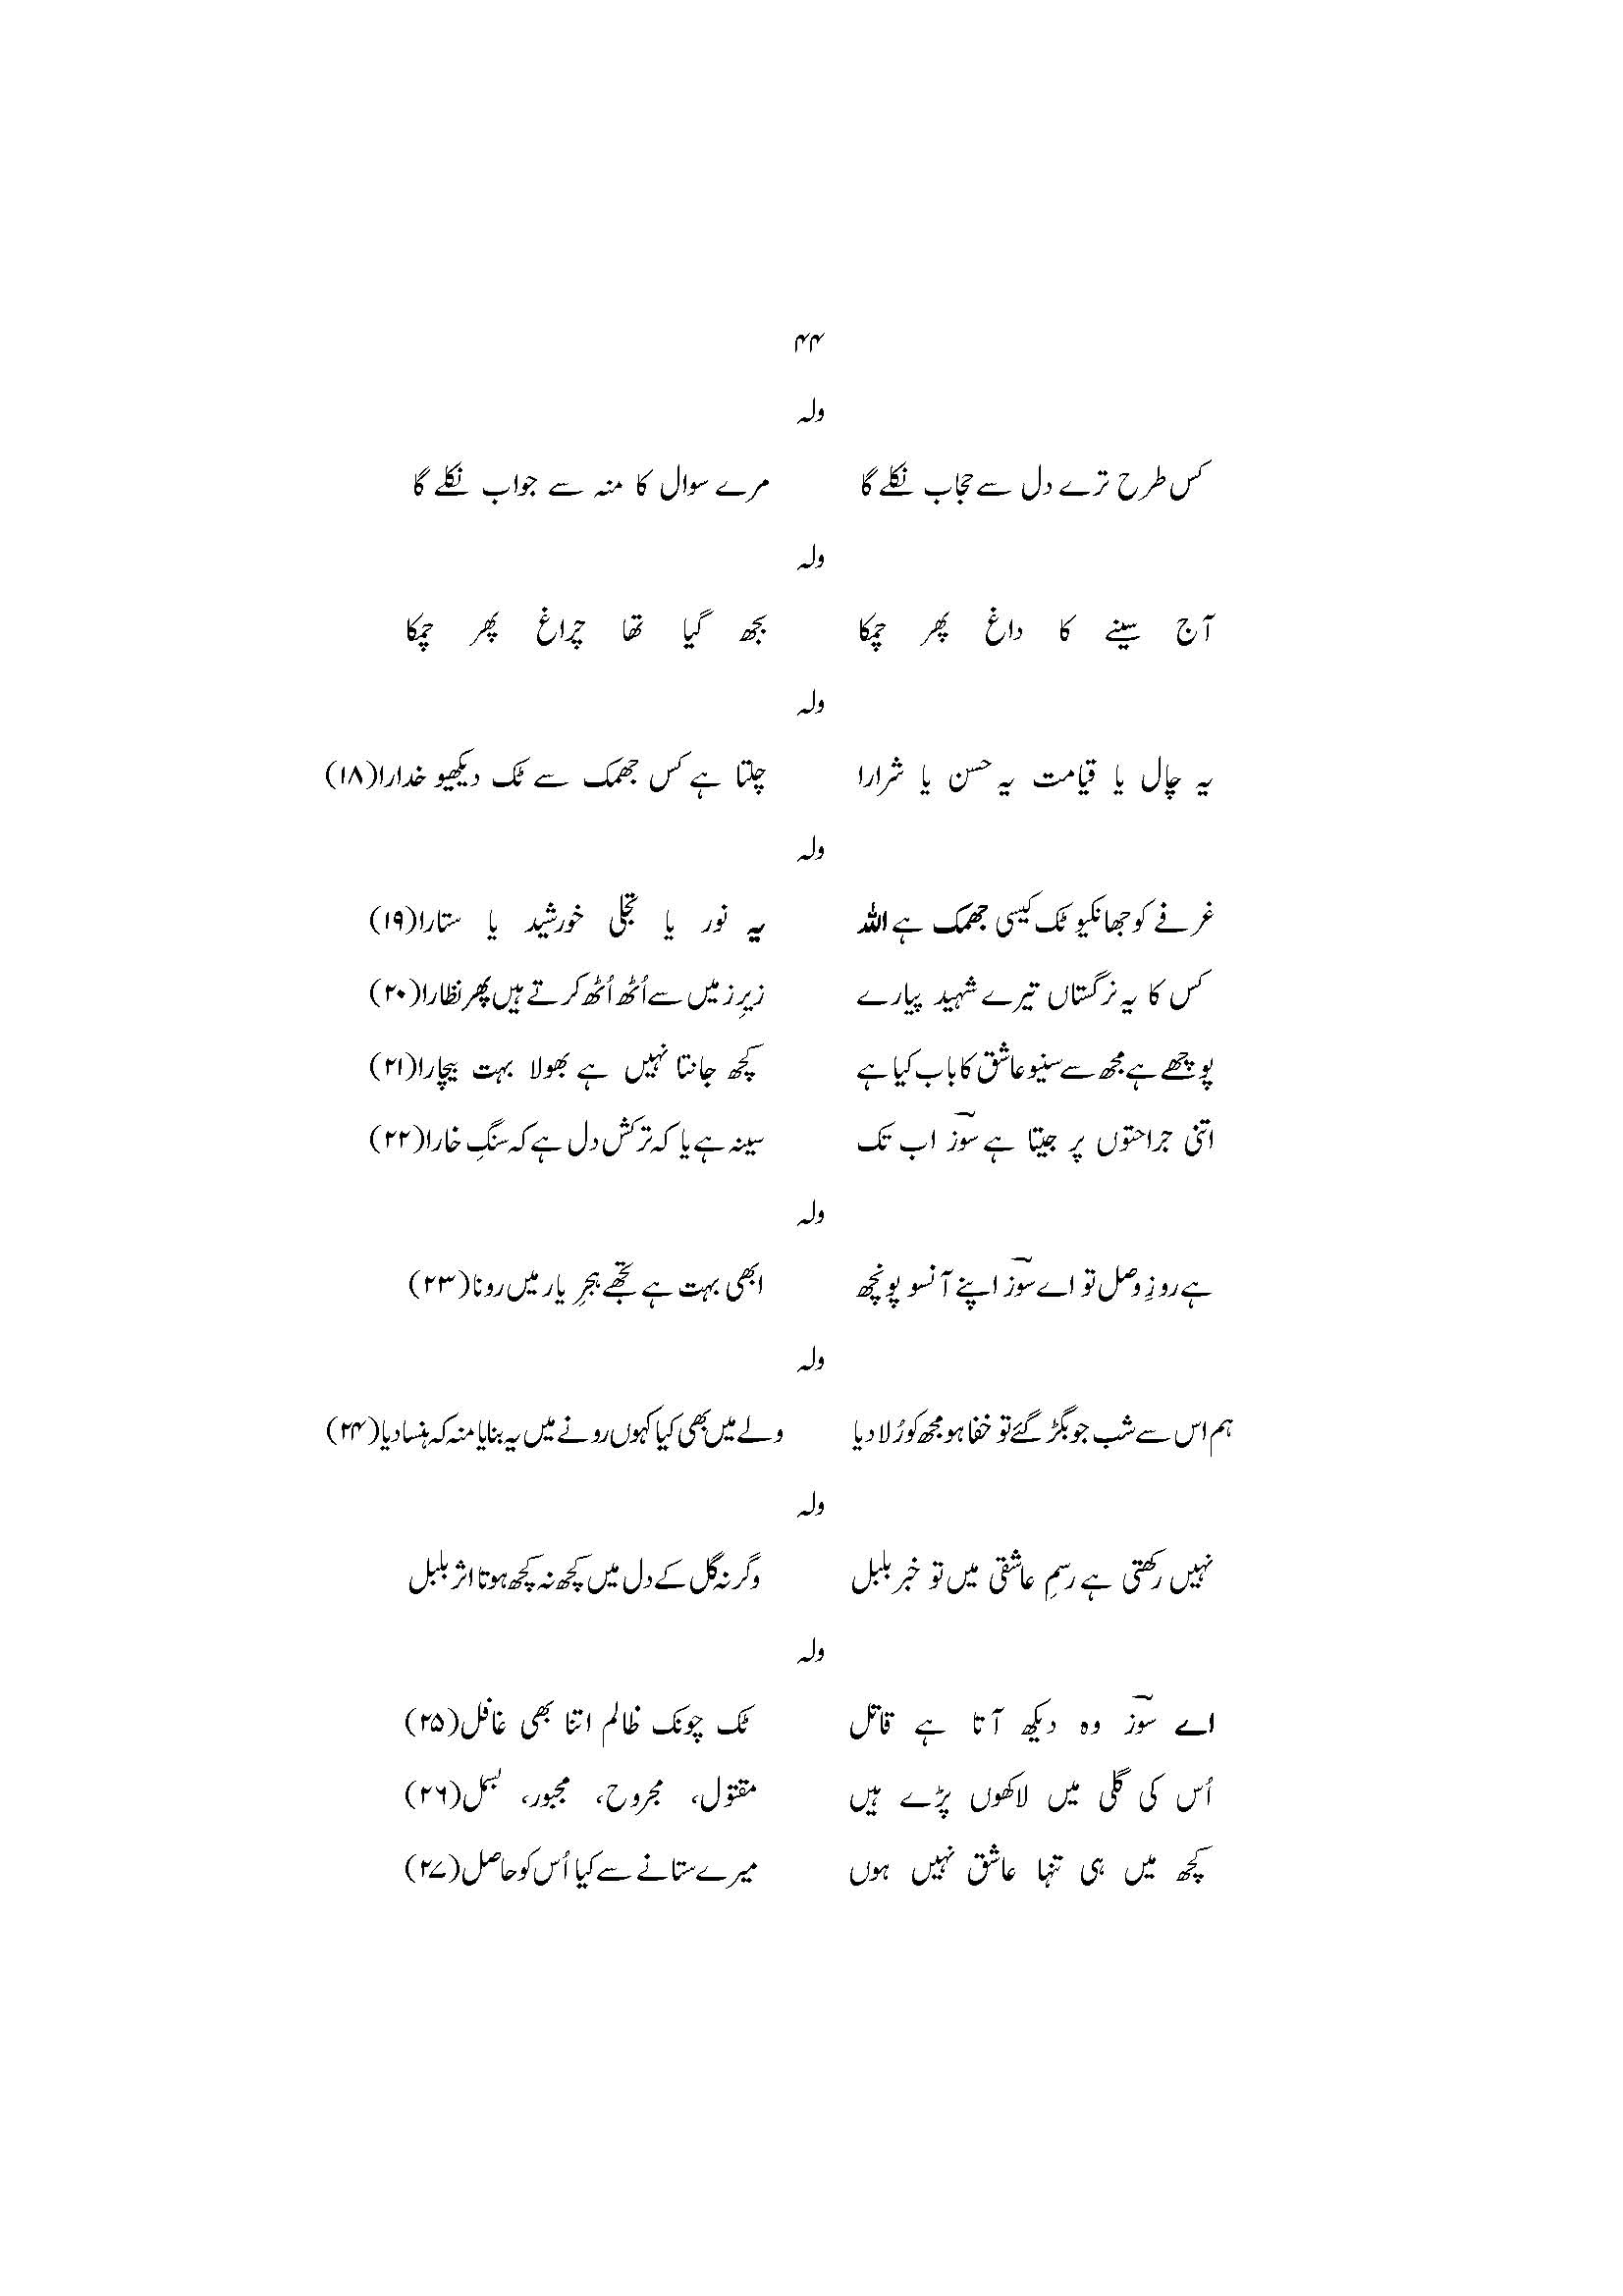 ۴۴
ولہ
کس طرح ترے دل سے حجاب نکلے گا مرے سوال کا منہ سے جواب نکلے گا
ولہ
آج سینے کا داغ پھر چمکا بجھ گیا تھا چراغ پھر چمکا
ولہ
یہ چال یا قیامت یہ حسن یا شرارا چلتا ہے کس جھمک سے ٹک دیکھیو خدارا(۱۸)
ولہ
غرفے کو جھانکیو ٹک کیسی جھمک ہے اللہ یہ نور یا تجلی خورشید یا ستارا(۱۹)
کس کا یہ نرگستاں تیرے شہید پیارے زیرِ زمیں سے اُٹھ اُٹھ کرتے ہیں پھر نظارا(۲۰)
پوچھے ہے مجھ سے سنیو عاشق کا باب کیا ہے کچھ جانتا نہیں ہے بھولا بہت بیچارا(۲۱)
اتنی جراحتوں پر جیتا ہے سوزؔ اب تک سینہ ہے یا کہ ترکش دل ہے کہ سنگِ خارا(۲۲)
ولہ
ہے روزِ وصل تو اے سوزؔ اپنے آنسو پونچھ ابھی بہت ہے تجھے ہجرِ یار میں رونا(۲۳)
ولہ
ہم اس سے شب جو بگڑ گئے تو خفا ہو مجھ کو رُلا دیا ولے میں بھی کیا کہوں رونے میں یہ بنایا منہ کہ ہنسا دیا(۲۴)
ولہ
نہیں رکھتی ہے رسمِ عاشقی میں تو خبر بلبل وگرنہ گل کے دل میں کچھ نہ کچھ ہوتا اثر بلبل
ولہ
اے سوزؔ وہ دیکھ آتا ہے قاتل ٹک چونک ظالم اتنا بھی غافل(۲۵)
اُس کی گلی میں لاکھوں پڑے ہیں مقتول، مجروح، مجبور، بسمل(۲۶)
کچھ میں ہی تنہا عاشق نہیں ہوں میرے ستانے سے کیا اُس کو حاصل(۲۷)